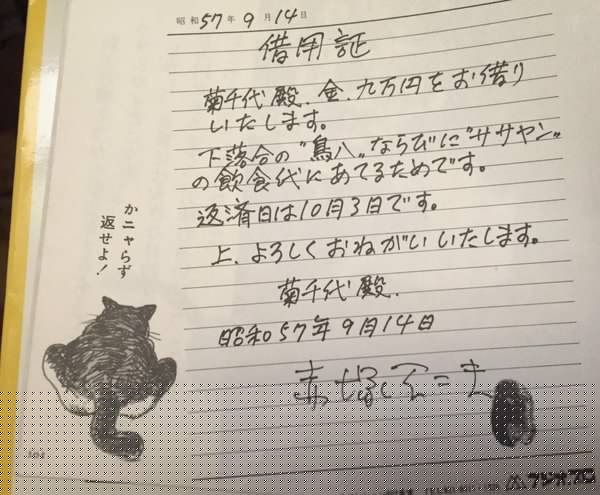 昭和57年9月14日
借用証
菊千代殿.金.九万円をお借り
いたします。
下落合の"鳥八"ならびに"ササヤン"
の飲食代にあてるためです。
返済日は10月3日です。
上.よろしくおねがいいたします。
菊千代殿.
昭和57年9月14日
赤塚不二夫
かニャらず
返せよ!
101
フジオ・プロ